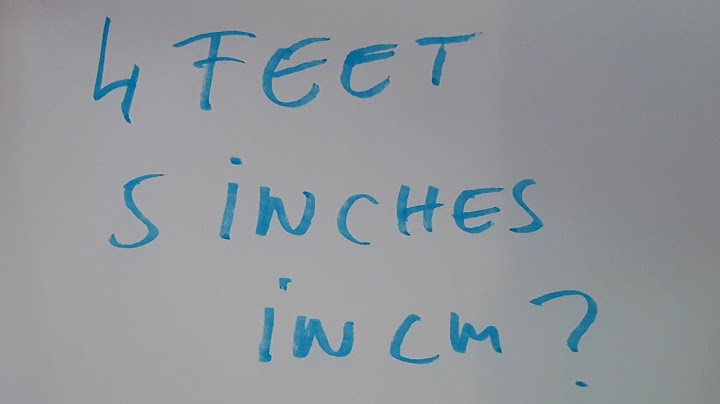 4 FEET
5 iNCHES
iN cm?